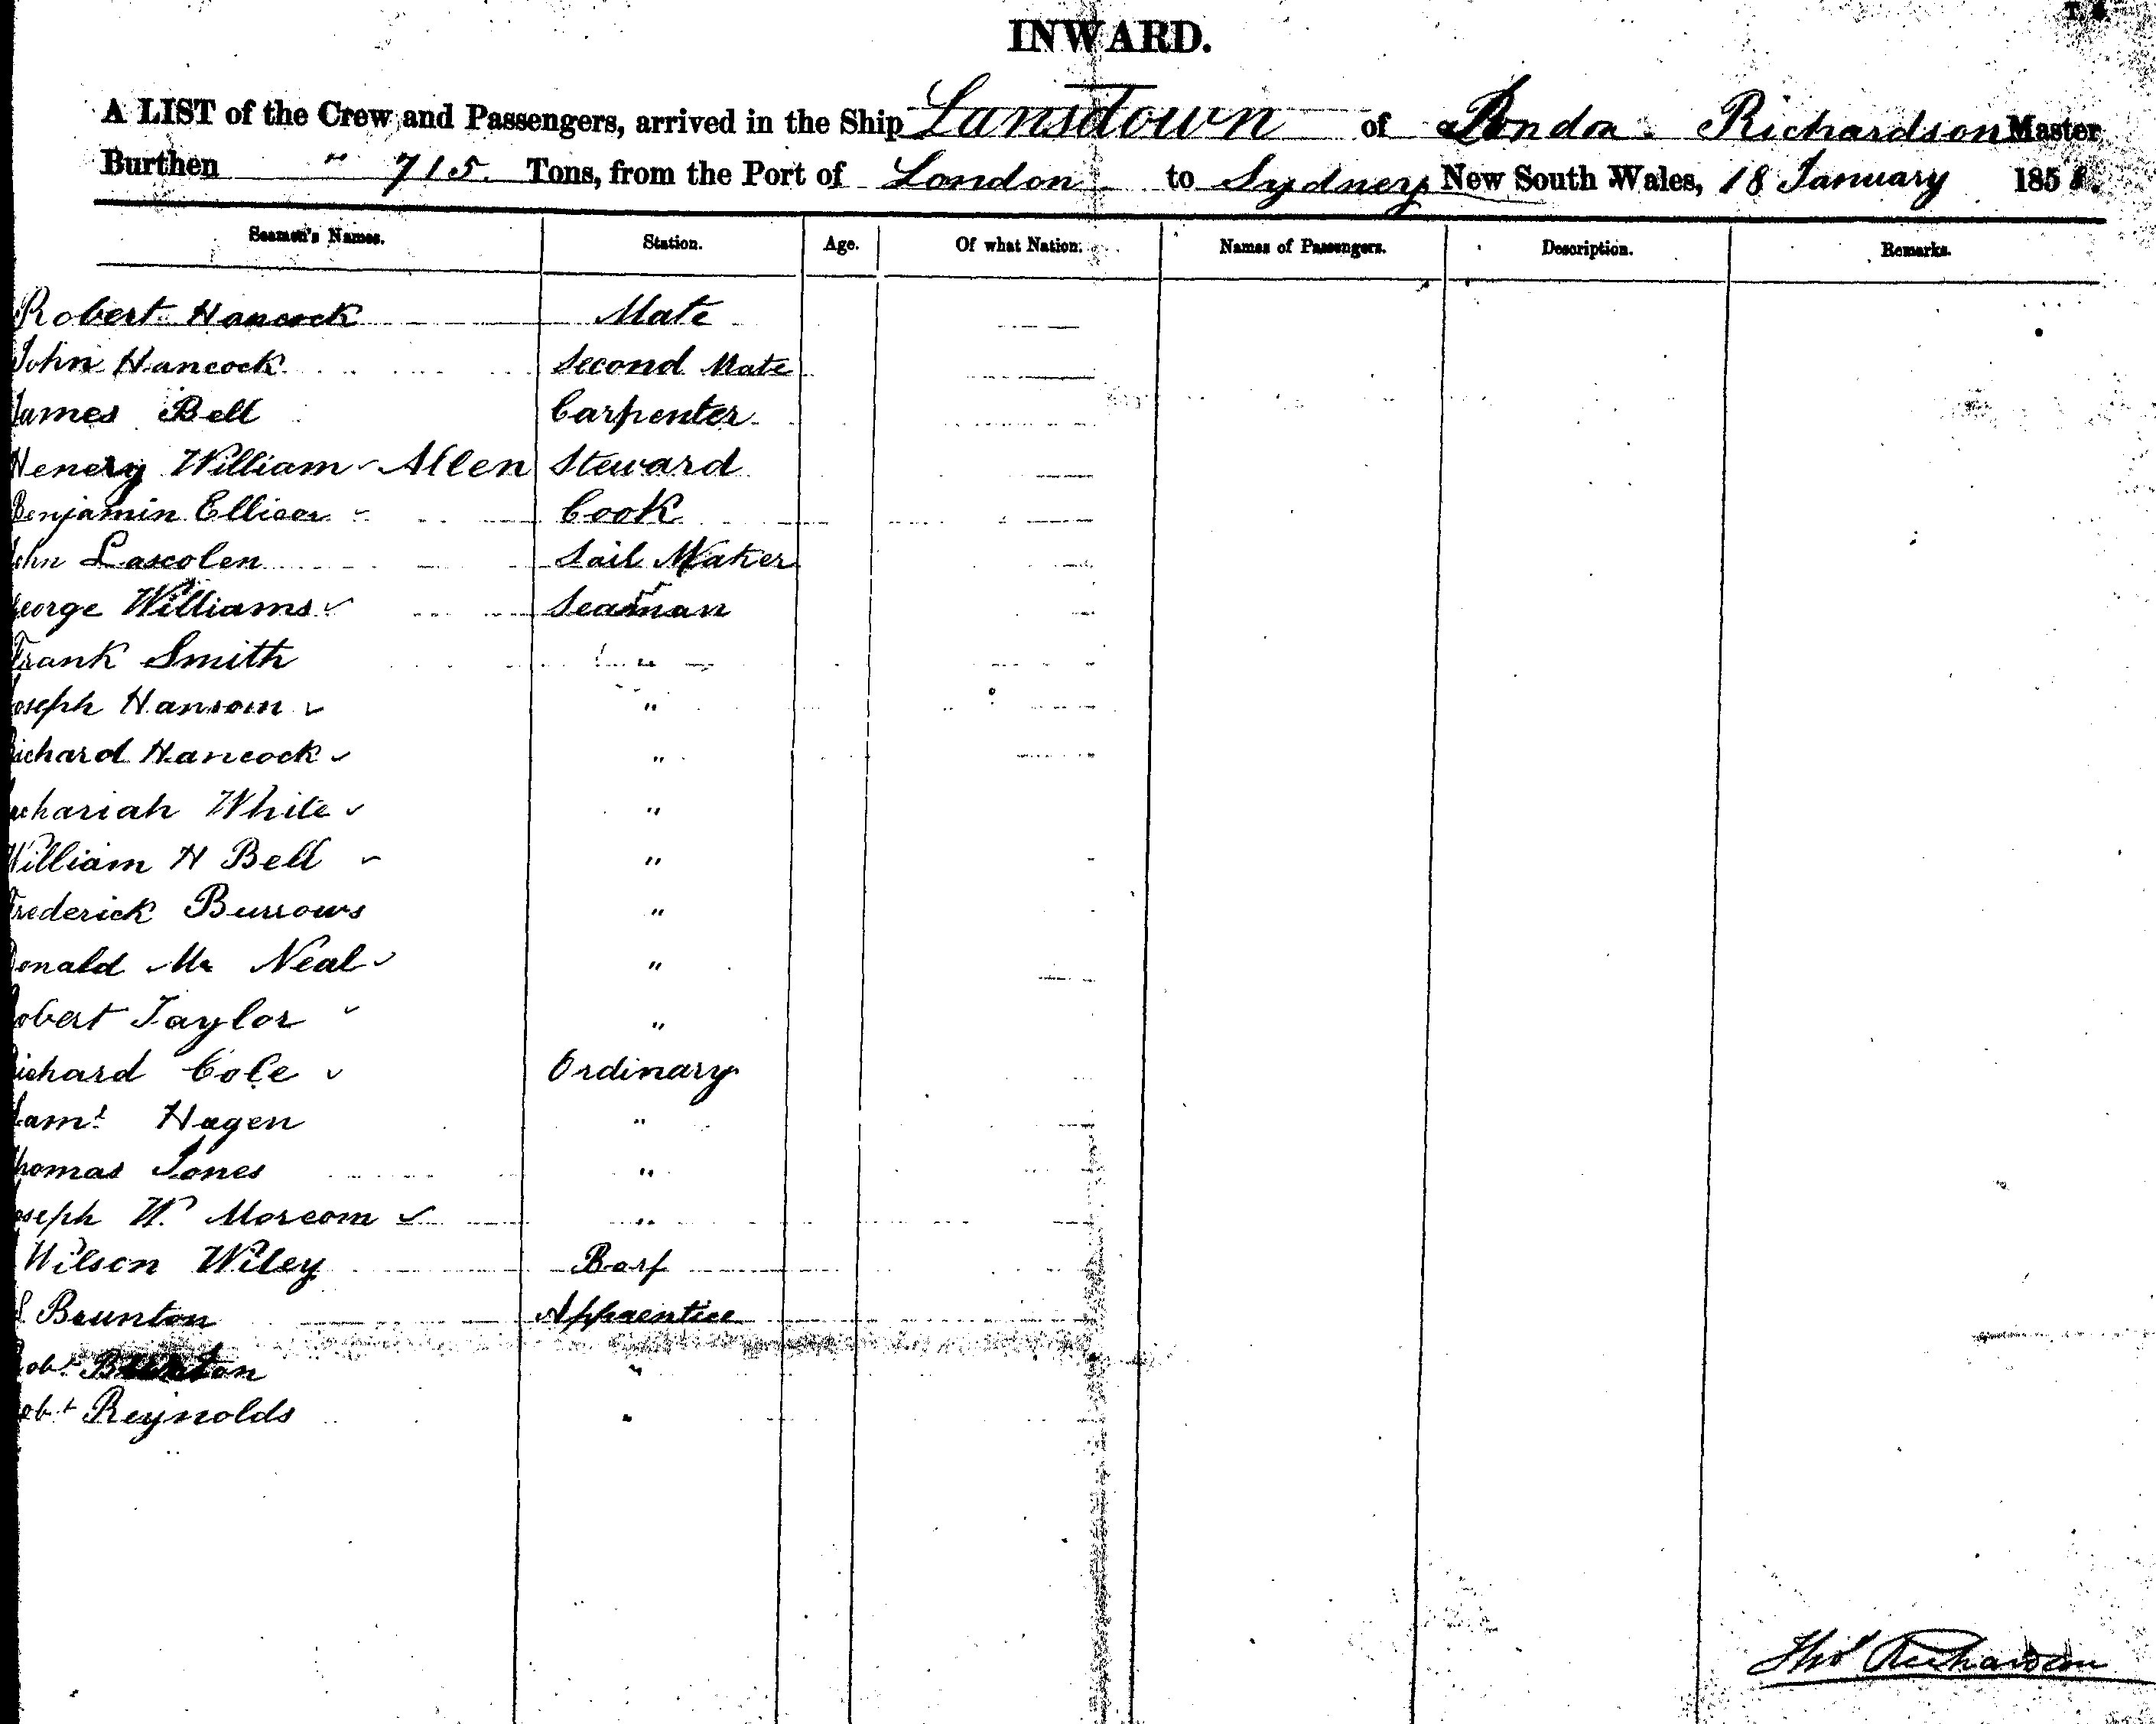 INWARD.
A LIST of the Crew and Passengers, arrived in the Ship Lansdown of London Richardson Master
Burthen " 715. Tons, from the Port of London to Sydney New South Wales, 18 January 1858.
Seamen's Names. Station. Age. Of what Nation. Names of Passengers. Description. Remarks.
Robert Hancock Mate
John Hancock Second Mate
James Bell Carpenter
Henery William Allen Steward
Benjamin Cook
John Lascolen Sail Maker
George Williams Seaman
Frank Smith "
Joseph Hansom "
Richard Hancock "
Zachariah White "
William H Bell "
Frederick Burrows "
Donald Mc Neal "
Robert Taylor "
Richard Cole Ordinary
Saml Hagen "
Thomas Jones "
Joseph W. Morcom "
Wilson Wiley Boy
Brunton Apprentice
Robt Brunton "
Robt Reynolds "
Thos Richardson